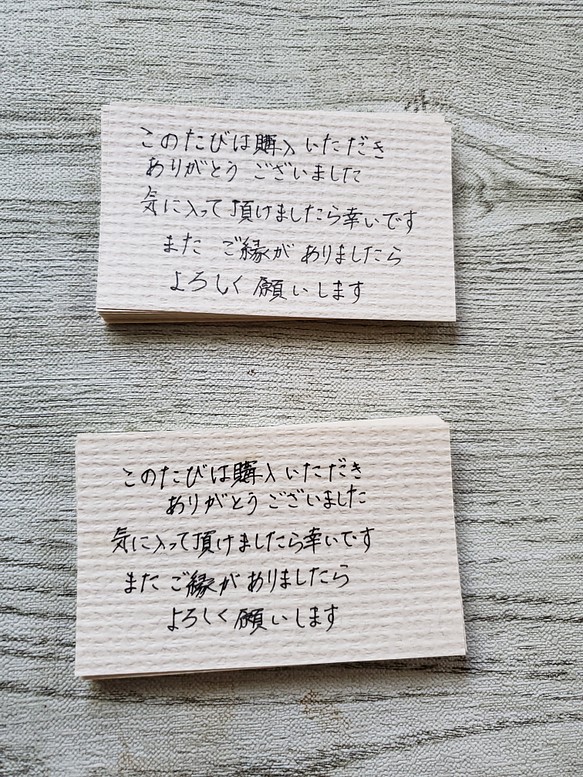 このたびは購入いただき
ありがとうございました
気に入って頂けましたら幸いです
またご縁がありましたら
よろしく願いします
このたびは購入いただき
ありがとうございました
気に入って頂けましたら幸いです
またご縁がありましたら
よろしく願いします